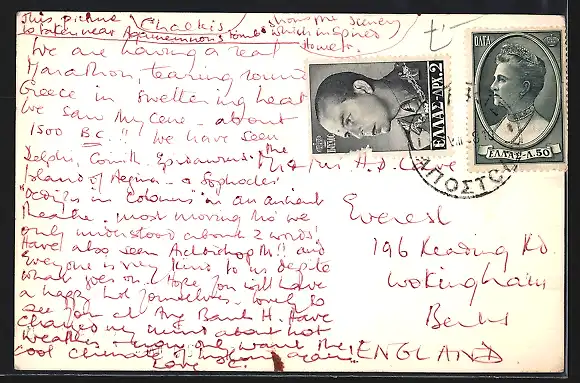 this picture (Chalkis) shows the scenery
is taken near Agamemnon's tomb which inspired
Homer.
We are having a real
Marathon, tearing round
Greece in sweltering heat
We saw Mycene - about
1500 BC!! We have seen
Delphi, Corinth Epidaurus, the
Island of Aegina - & Sophocles'
"Oedipus in Colonus" in an ancient
theatre. most moving tho we
only understood about 2 words!
Have also seen Archbishop M!! and
Everyone is very kind to us despite
what goes on. Hope you will have
a happy hol yourselves. lovely to
see you at Bank H. Have
changed my mind about hot
weather - may only want the
cool climate of England again!
Love C.
Mr & Mrs H.D.
Everest
196 Reading Rd
Wokingham
Berks
ENGLAND
ΕΛΛΑΣ-ΔΡΧ.2
ΟΛΓΑ
ΕΛΛΑΣ-Λ.50
ΑΠΟΣΤΟ